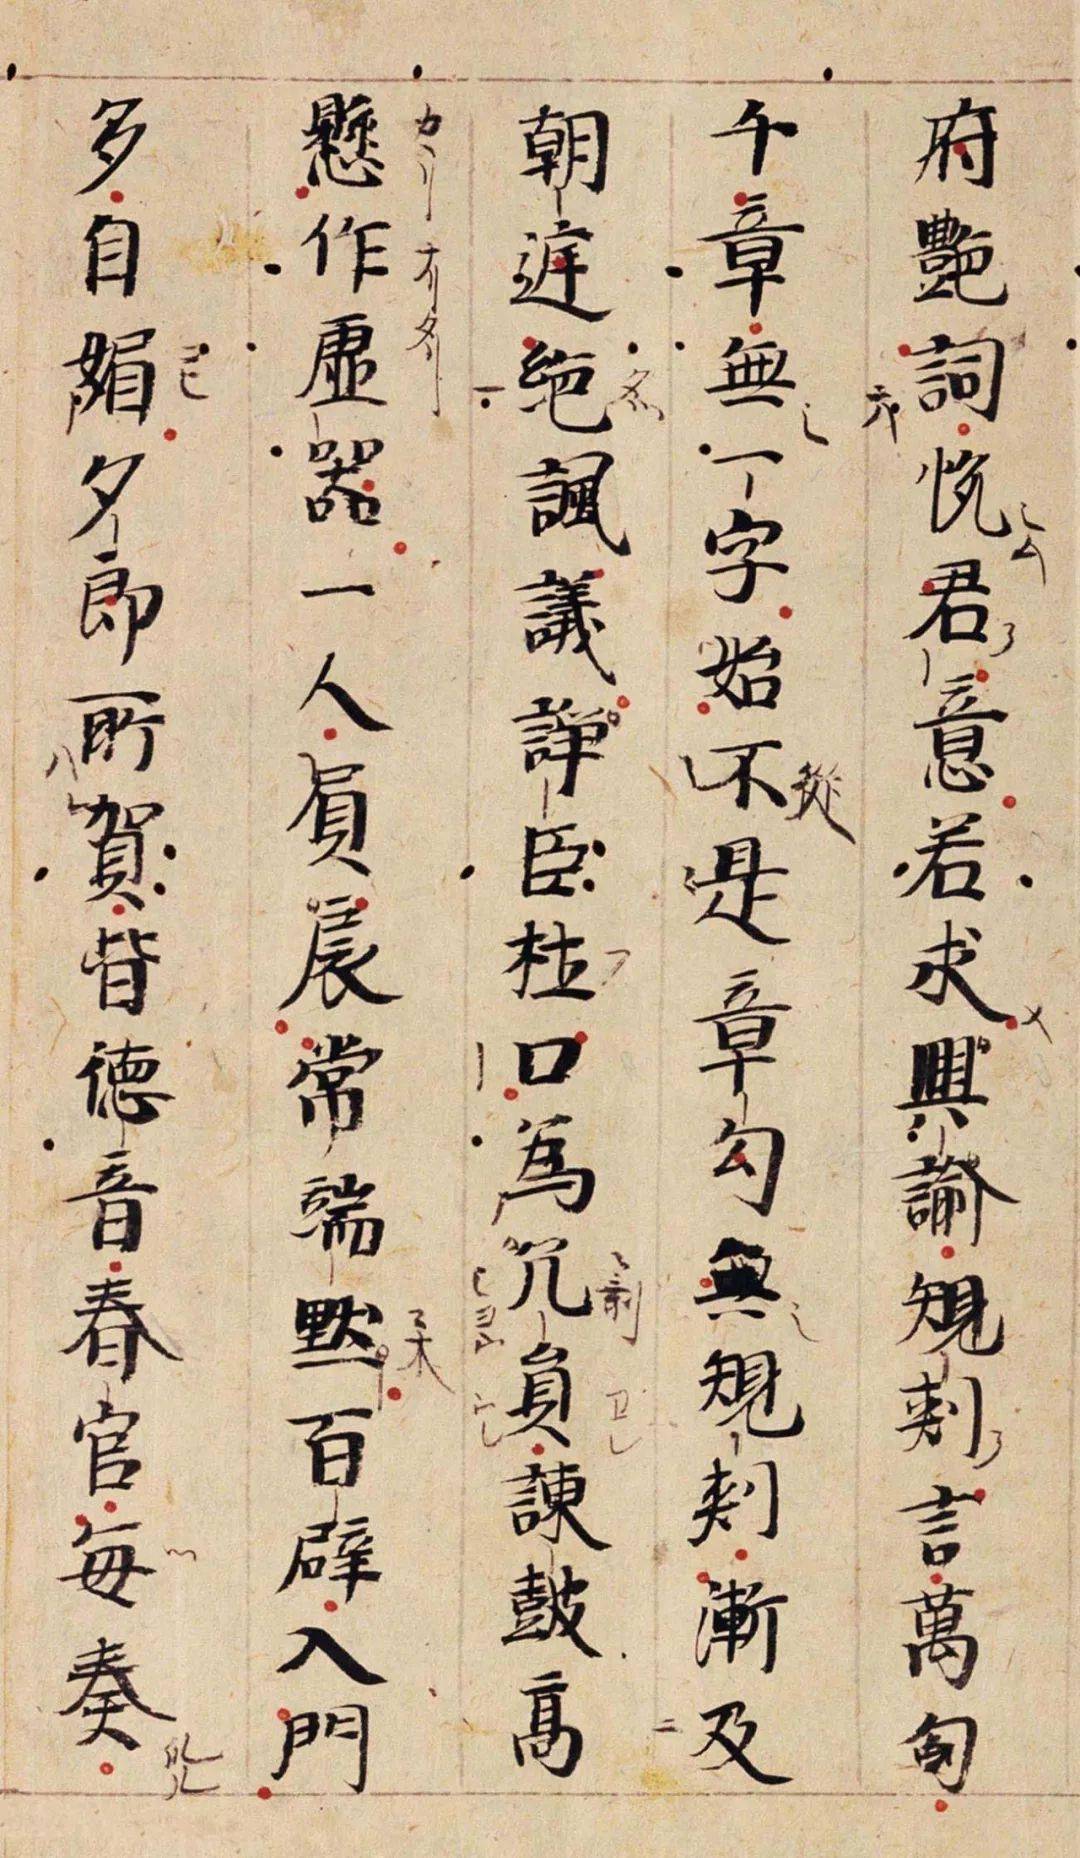 府艷詞悦君意若求興諭規刺言萬句
千章無一字始不是章勾無規刺漸及
朝廷絶諷議諍臣杜口為冗員諫鼓高
懸作虚器一人負扆常端默百辟入門
多自媚夕郎所賀皆德音春官每奏